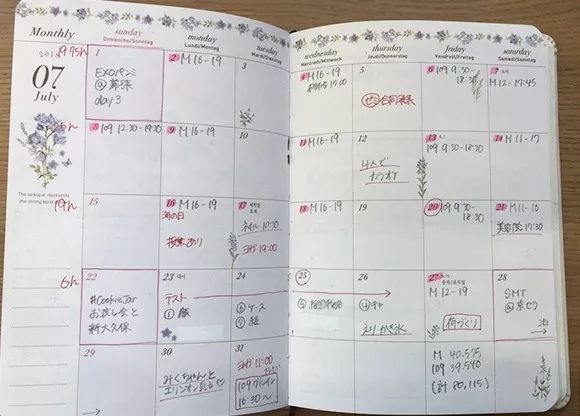 Monthly
07
July
The larkspur represents
the strong bond
sunday
Dimanche/Sonntag
monday
Lundi/Montag
tuesday
wednesday
Mercredi/Mittwoch
thursday
Jeudi/Donnerstag
friday
Vendredi/Freitag
saturday
Samedi/Samstag
1
EXOペンミ
@幕張
day 3
2 M 16-19
3
4 M 16-19
17:00
5
ゼミ合同発表
6 109 9:30-
18:30
7
M 12-17:45
8 109 12:30-19:30
9 M 16-19
10
11 M 16-19
12
4人で
カラオケ
13
109 9:30-18:30
14 M 11-17
15
16 M 16-19
海の日
授業あり
17
ネイル 10:30
ヨガ 19:00
18 M 16-19
19
20 109 9:30-
18:30
21 M 11-16
美容院 17:30
22
#CookieJar
お渡し会と
新大久保
23
テスト
①
24
⑥ケース
⑦
25
⑤
26
④
えり かき氷
27
M 12-19
荷づくり
28
SMT
29
30
みくちゃんと
31
ヨガ 11:00
109
16:30~
M 40.575
109 39.540
(計 80,115)
5h
19h
6h